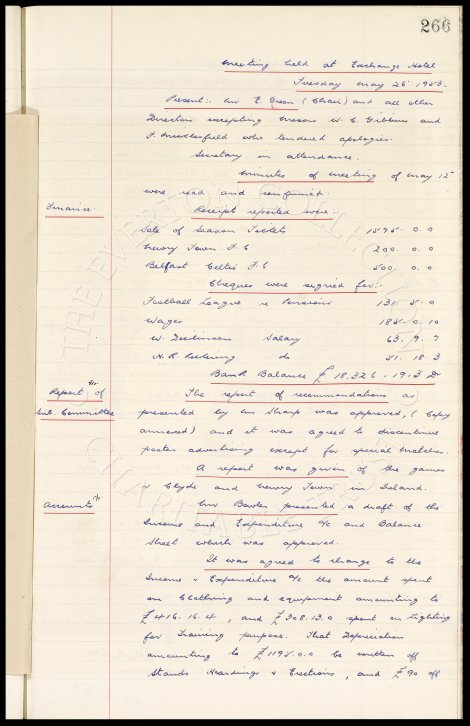 266
Meeting held at Exchange Hotel
Tuesday May 26 1953.
Present:- Mr E. Green (Chair) and all other
Directors excepting Messrs W. C. Gibbins and
J. who tendered apologies.
Secretary in attendance.
Minutes of meeting of May 12
were read and confirmed.
Finance.
Receipts reported were:-
Sale of Season Tickets 1595. 0. 0
Newry Town F.C 200. 0. 0
Belfast Celtic F.C 500. 0. 0
Cheques were signed for:-
Football League re Pensions 13. 0
Wages 0. 10
W. Dickinson Salary 63. 9. 7
H. R. Pickering do 51. 18. 3
Bank Balance £ 18,326. 19. 3 Dr
Report of
Sub. Committee
The report of recommendations as
presented by Mr Sharp was approved, (Copy
annexed) and it was agreed to discontinue
poster advertising except for special matches.
A report was given of the games
v Clyde and Newry Town in Ireland.
Accounts
Mr Bawler presented a draft of the
Income and Expenditure a/c and Balance
Sheet which was approved.
It was agreed to charge to the
Income & Expenditure a/c the amount spent
on Clothing and equipment amounting to
£416. 16. 4, and £308. 13. 0 spent on Lighting
for Training purpose. That Depreciation
amounting to £1195. 0. 0 be written off
Stands Hoardings & Erections, and £90 off
THE EVERTON COLLECTION
CHARITABLE TRUST